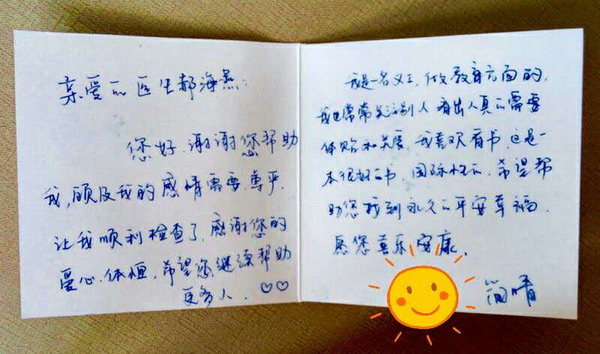 亲爱的医生郝海燕：
您好.谢谢您帮助
我,顾及我的感情需要.尊严.
让我顺利检查了.感谢您的
爱心.体恤,希望您继续帮助
更多人.♡♡
我是一名义工,做教育方面的.
我也常常关心别人,看出人真的需要
体贴和关爱,我喜欢看书,这是一
本很好的书,国际性的.希望帮
助您找到永久的平安幸福.
愿您喜乐安康.